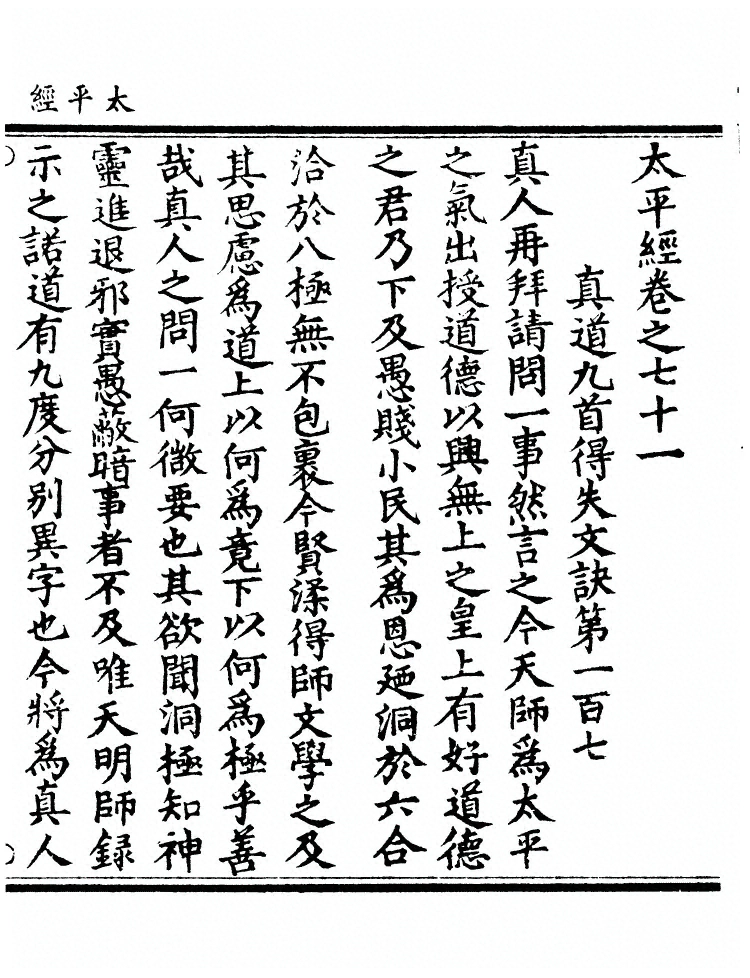 太平經
太平經卷之七十一
真道九首得失文訣第一百七
真人再拜請問一事然言之今天師爲太平
之氣出授道德以興無上之皇上有好道德
之君乃下及愚賤小民其爲恩廼洞於六合
洽於八極無不包裹今賢渘得師文學之及
其思慮爲道上以何爲竟下以何爲極乎善
哉真人之問一何微要也其欲聞洞極知神
靈進退邪實愚蔽暗事者不及唯天明師錄
示之諾道有九度分别異字也今將爲真人